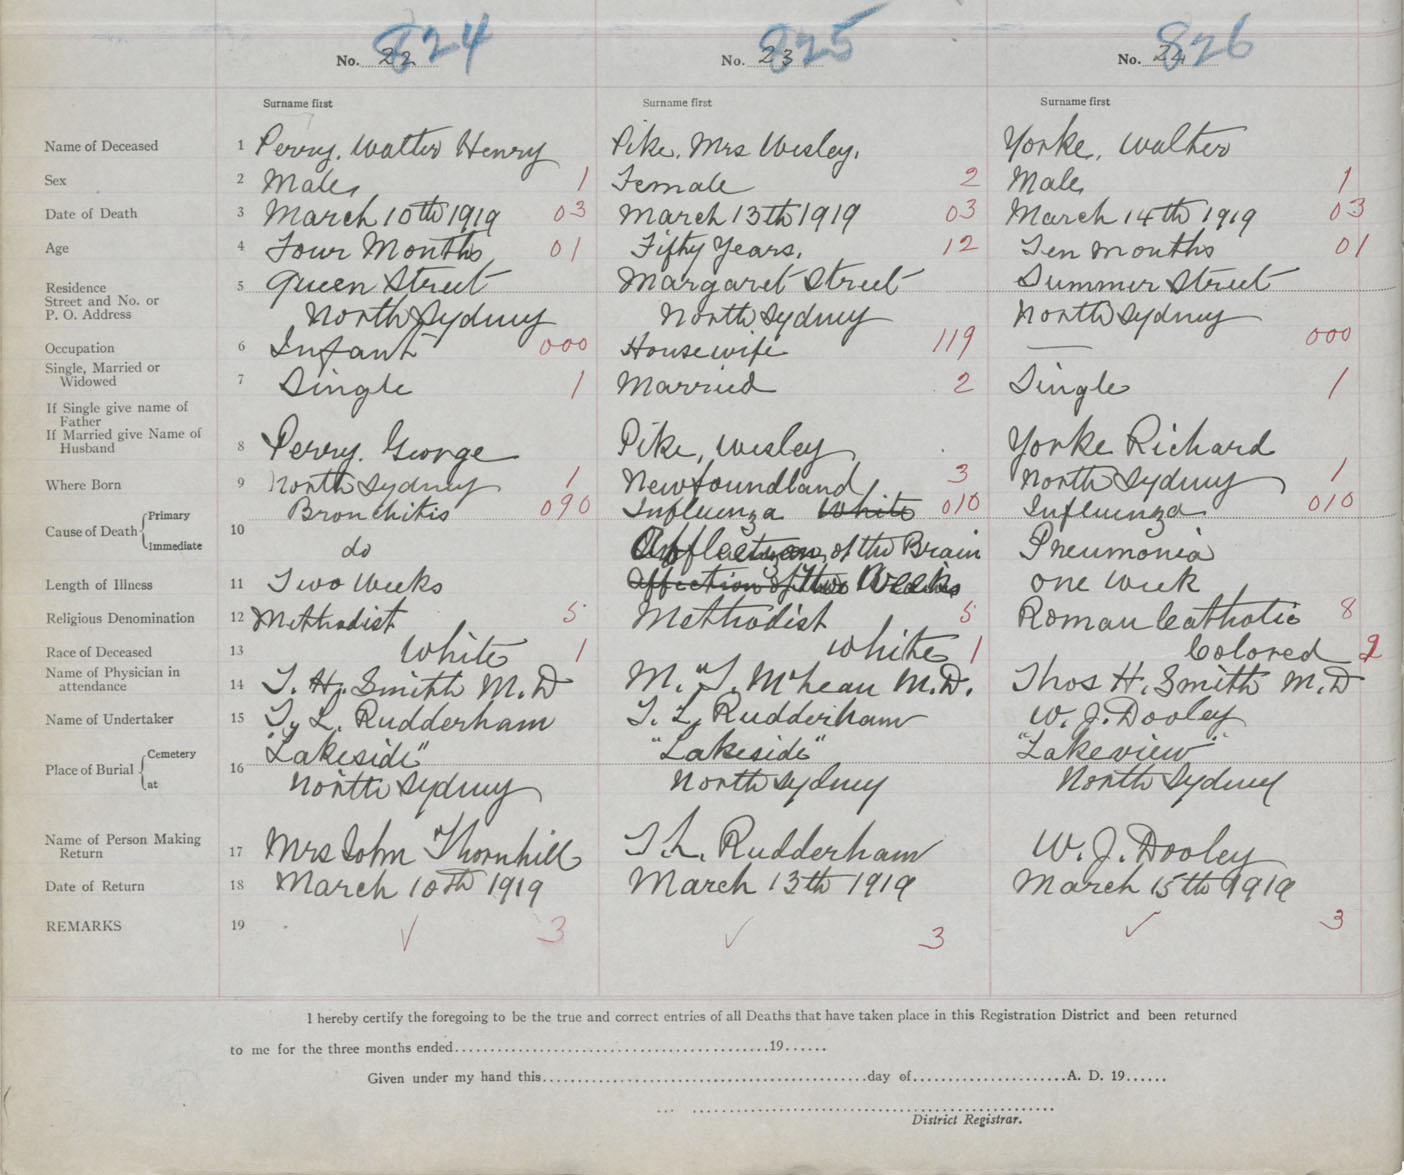 824 825 826
No. 22 No. 23 No. 24
Surname first Surname first Surname first
Name of Deceased 1 Perry, Walter Henry Pike, Mrs Wesley. Yorke, Walter
Sex 2 Male 1 Female 2 Male 1
Date of Death 3 March 10th 1919 03 March 13th 1919 03 March 14th 1919 03
Age 4 Four Months 01 Fifty Years. 12 Ten Months 01
Residence 5 Queen Street Margaret Street Summer Street
Street and No. or
P. O. Address North Sydney North Sydney North Sydney
Occupation 6 Infant 000 Housewife 119 — 000
Single, Married or
Widowed 7 Single 1 Married 2 Single 1
If Single give name of
Father
If Married give Name of
Husband 8 Perry. George Pike, Wesley Yorke Richard
Where Born 9 North Sydney 1 Newfoundland 3 North Sydney 1
Primary Bronchitis 090 Influenza White 010 Influenza 010
Cause of Death 10
Immediate do of the Brain Pneumonia
Length of Illness 11 Two Weeks Affection of Two Weeks one week
Religious Denomination 12 Methodist 5 Methodist 5 Roman Catholic 8
Race of Deceased 13 White 1 White 1 Colored 2
Name of Physician in
attendance 14 T. H. Smith M.D M. T. McLean M.D. Thos H. Smith M.D
Name of Undertaker 15 T. L. Rudderham T. L. Rudderham W. J. Dooley
Cemetery "Lakeside" "Lakeside" "Lakeview"
Place of Burial 16
at North Sydney North Sydney North Sydney
Name of Person Making
Return 17 Mrs John Thornhill T. L. Rudderham W. J. Dooley
Date of Return 18 March 10th 1919 March 13th 1919 March 15th 1919
REMARKS 19 ✓ 3 ✓ 3 ✓ 3
I hereby certify the foregoing to be the true and correct entries of all Deaths that have taken place in this Registration District and been returned
to me for the three months ended........................................19......
Given under my hand this........................................day of......................A. D. 19......
District Registrar.